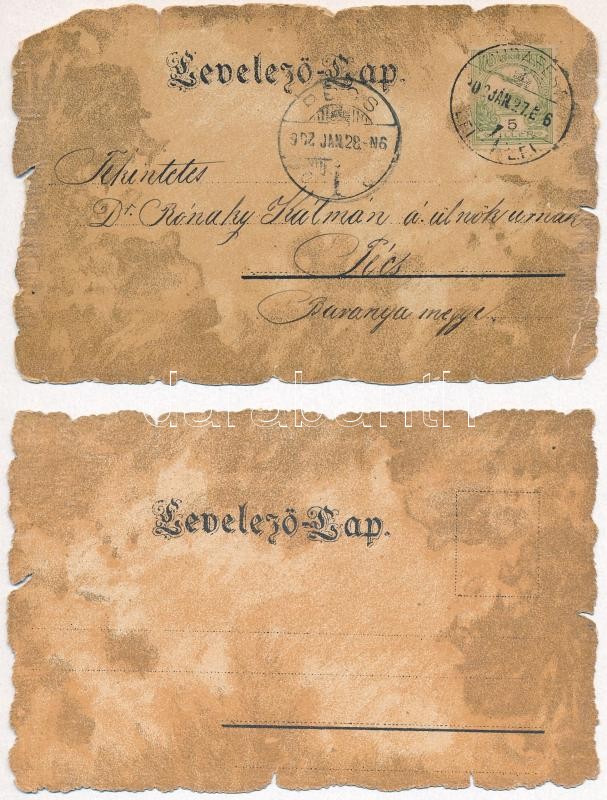 Levelező-Lap.
5
902 JAN. 27. E 6
PÉCS
902 JAN. 28.-N6
Tekintetes
Dr. Rónaky Kálmán á. ülnök urnak
Pécs
Baranya megye.
darabanth
Levelező-Lap.